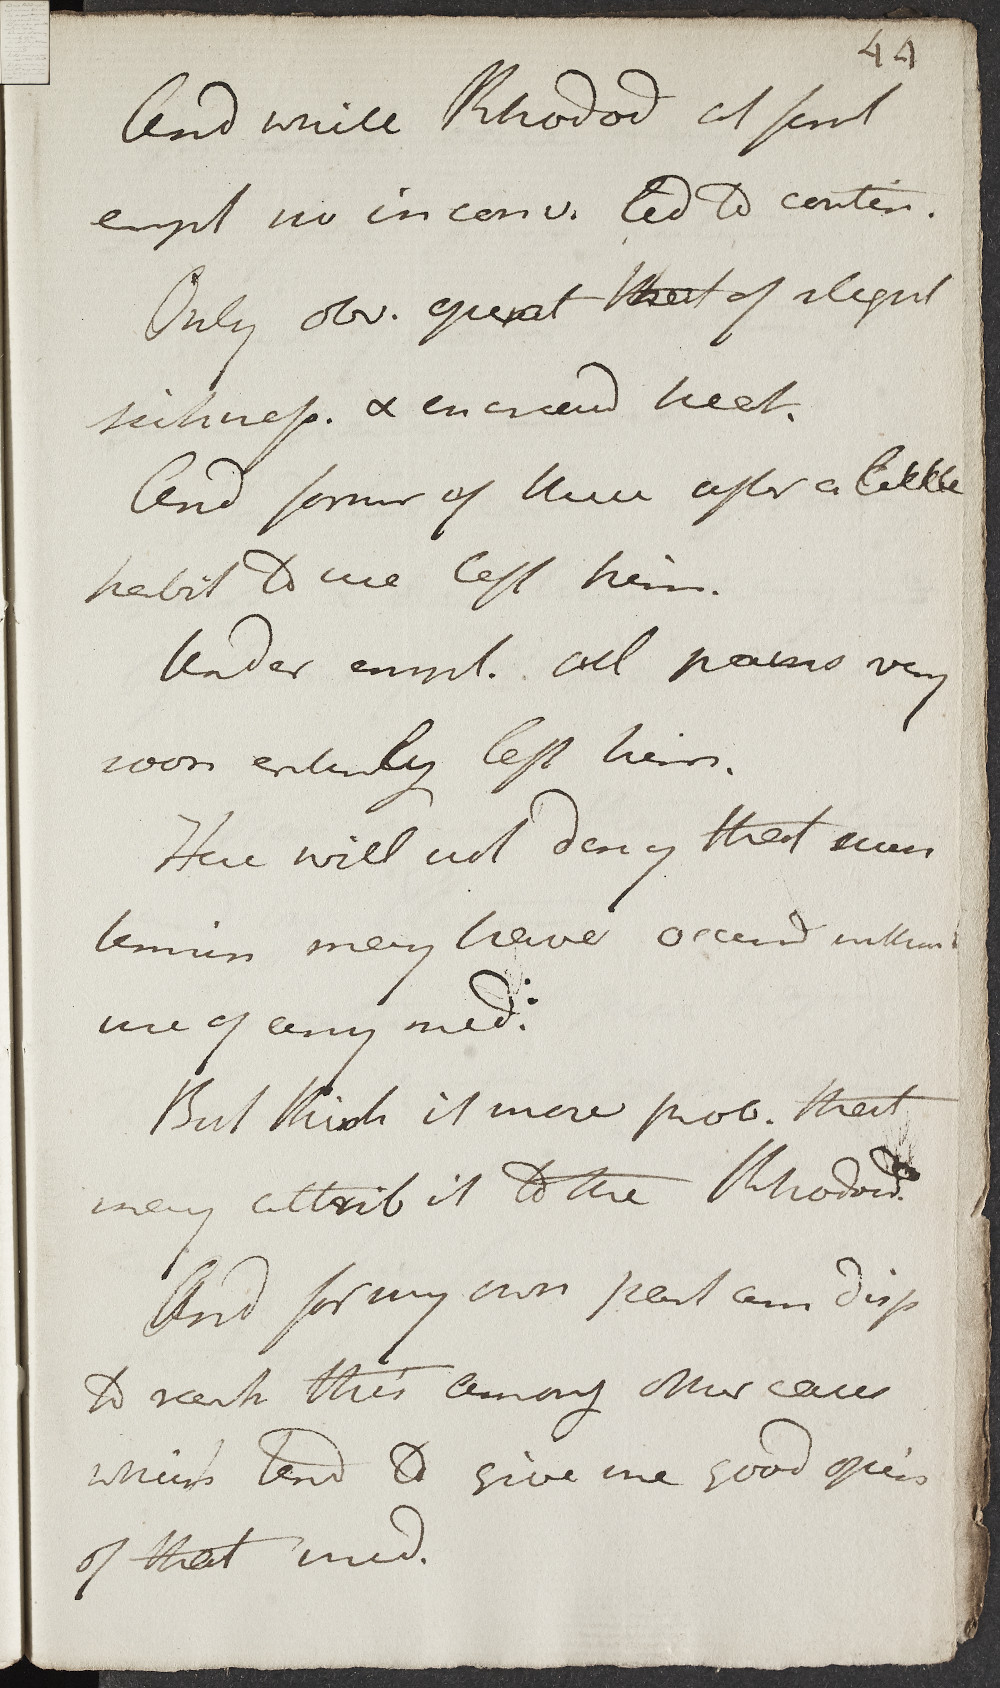 44
And while Rhodod at first
empl no inconv. led to contin.
Only obv. effect that of slight
sickness. & encreasd heat.
And former of these after a little
habit to use left him.
Under empl. all pains very
soon entirely left him.
Here will not deny that same
termin may have occurd without
use of any med:
But think it more prob. that
may attrib it to the Rhodod.
And for my own part am disp
to rank this among other cases
which tend to give me good opin
of that med.